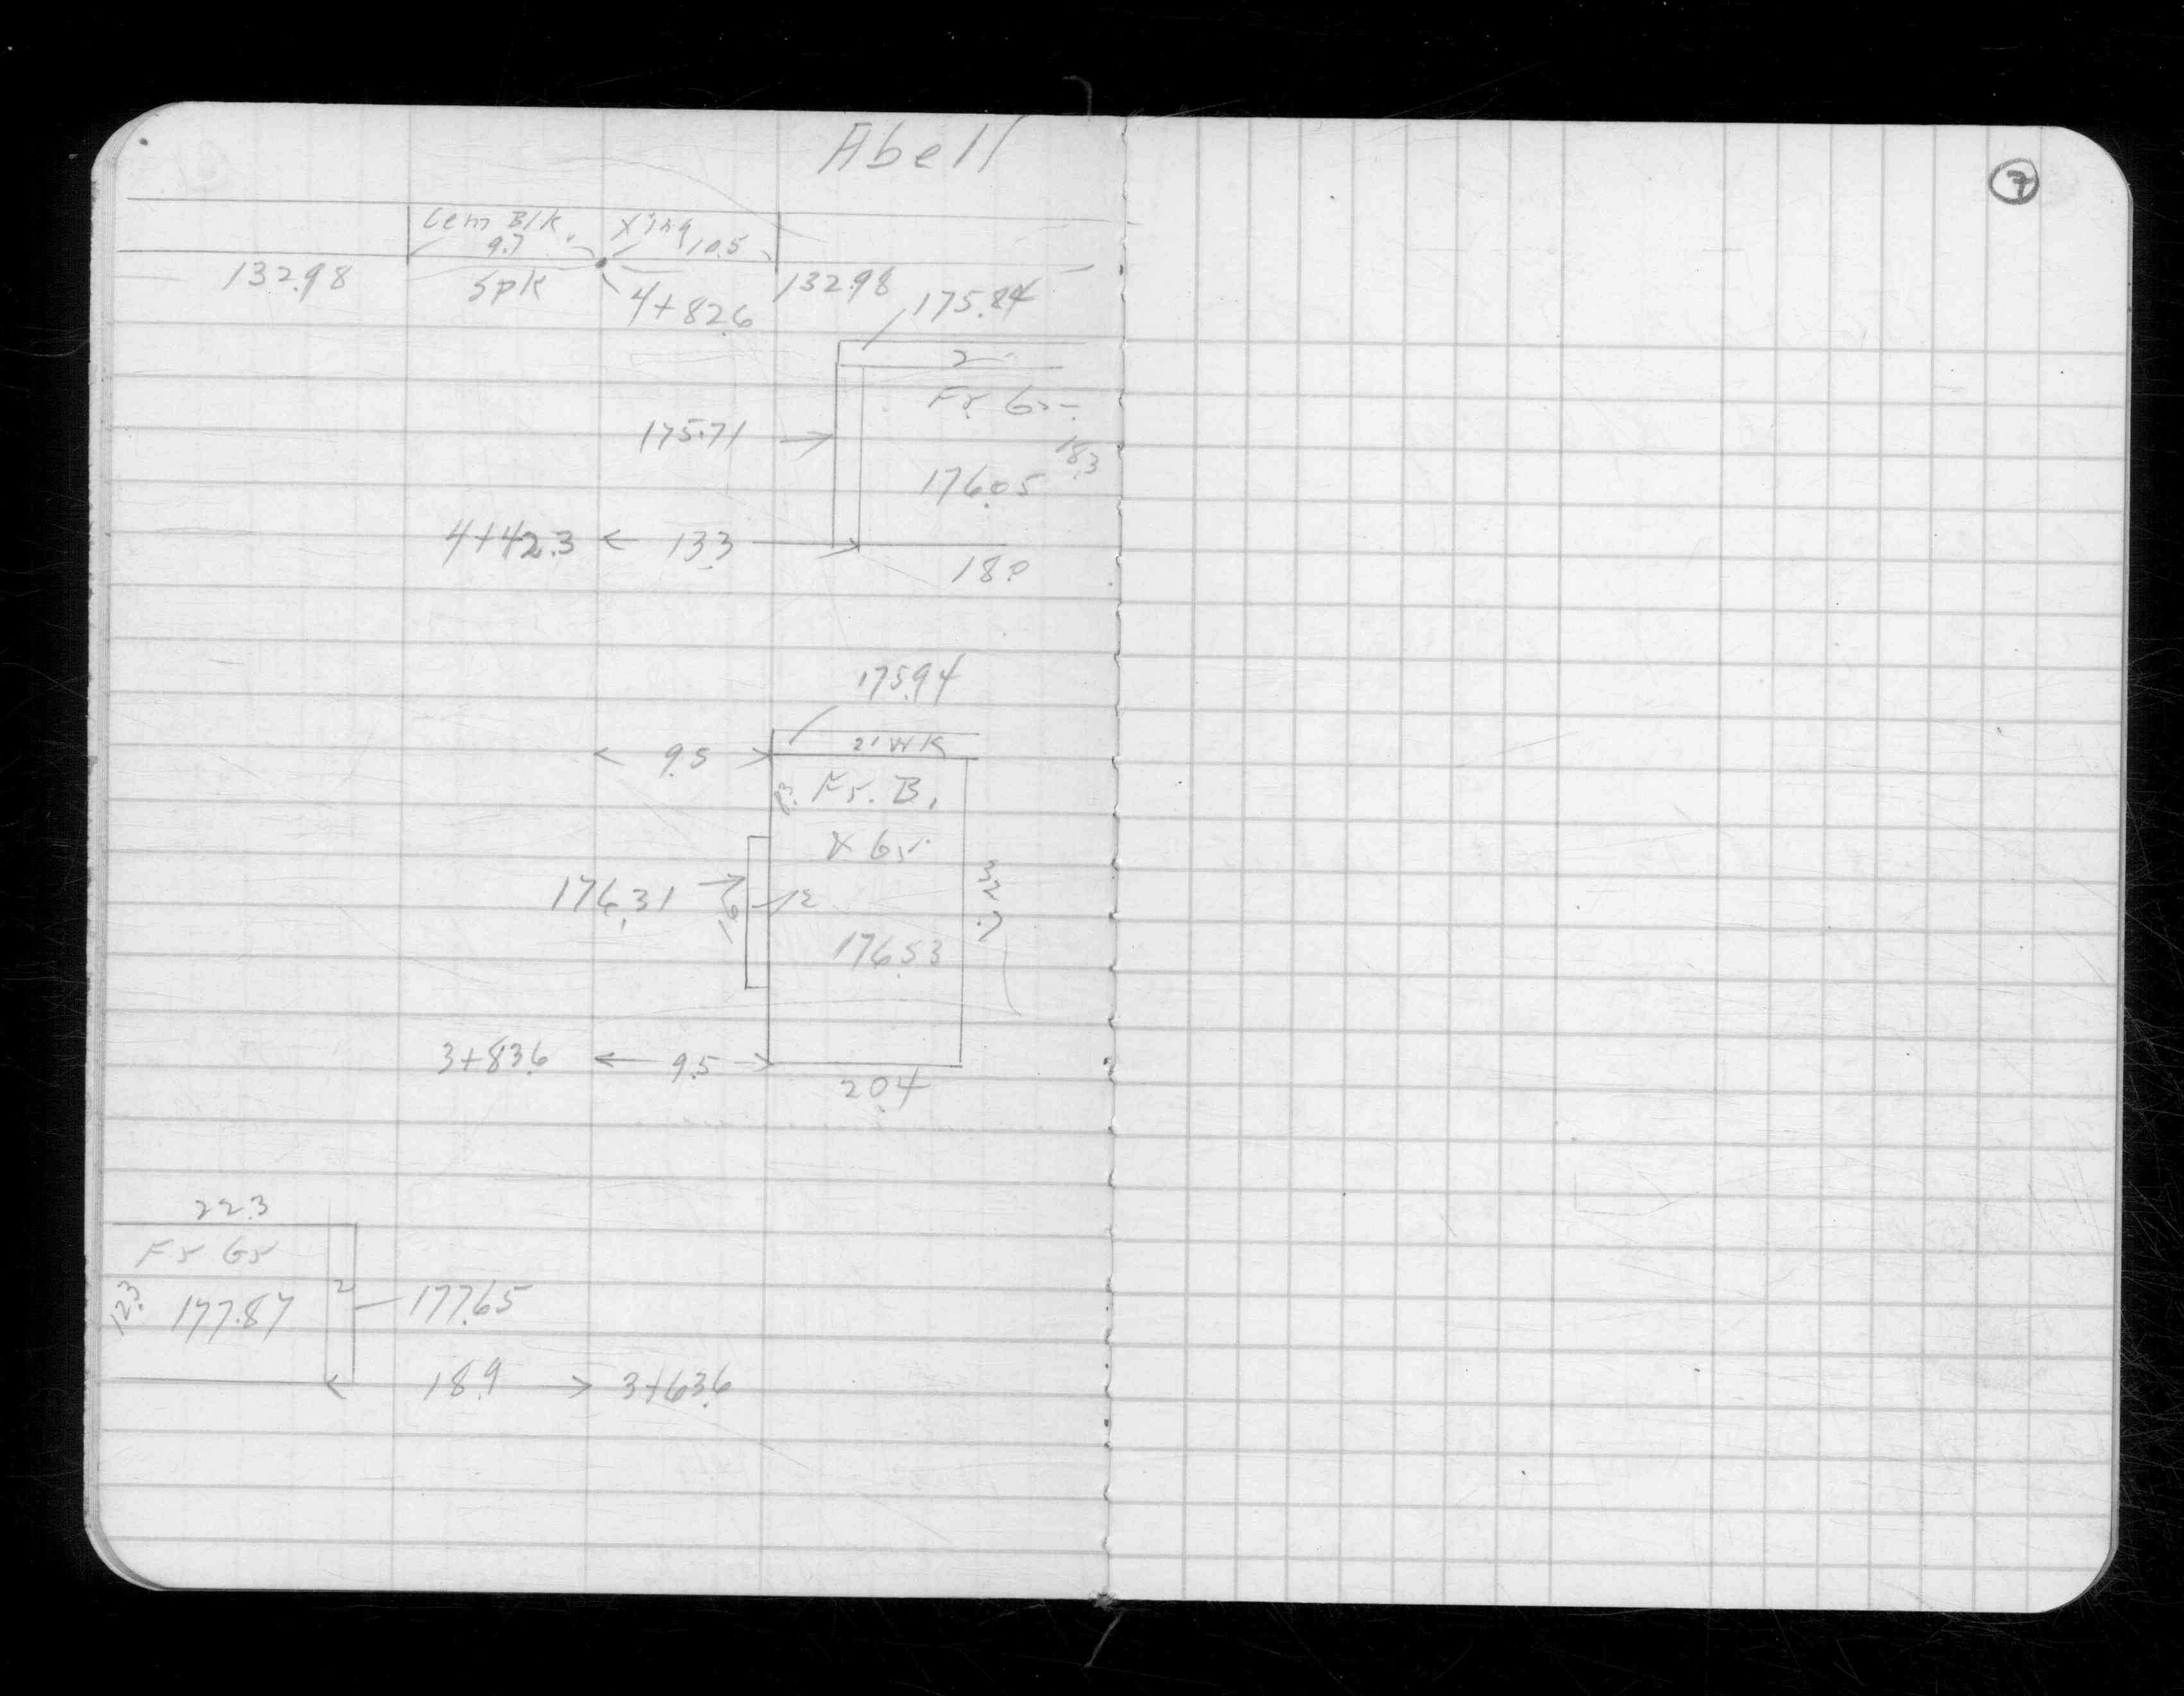 Abell
7
Cem Blk. X'ing
9.7 10.5
132.98 Spk 4+82.6 132.98
175.84
2
Fr. Gr.
175.71
18.3
176.05
4+42.3 13.3
18.0
175.94
9.5 2' WK
8.3 Fr. B.
X Gr.
176.31 16 12 32.7
176.53
3+83.6 9.5
20.4
22.3
Fr Gr
12.3 177.87 2 177.65
18.9 3+63.6